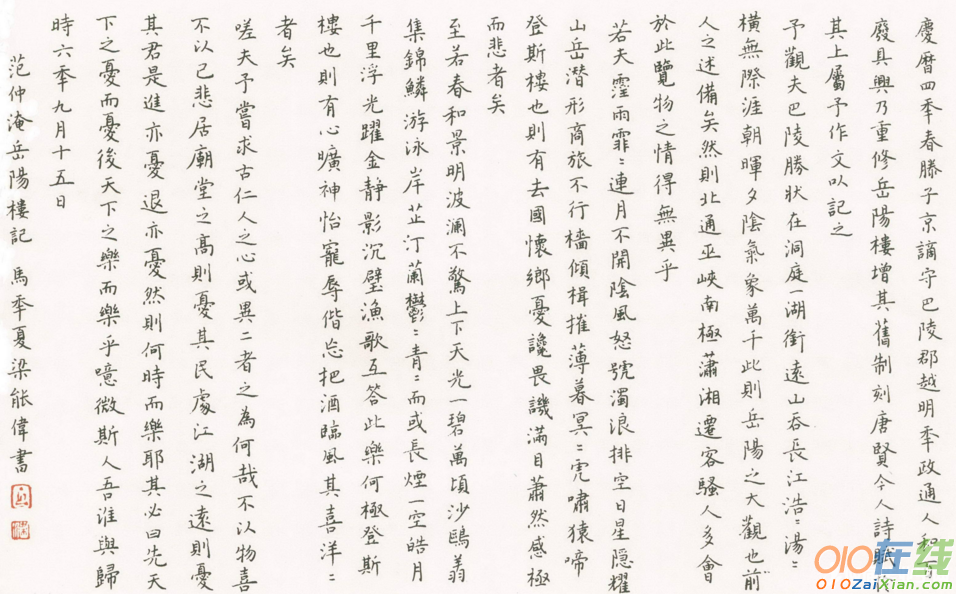 慶曆四季春滕子京謫守巴陵郡越明季政通人和百
廢具興乃重修岳陽樓增其舊制刻唐賢今人詩賦於
其上屬予作文以記之
予觀夫巴陵勝狀在洞庭一湖銜遠山吞長江浩﹕湯﹕
橫無際涯朝暉夕陰氣象萬千此則岳陽之大觀也前
人之述備矣然則北通巫峽南極瀟湘遷客騷人多會
於此覽物之情得無異乎
若夫霪雨霏﹕連月不開陰風怒號濁浪排空日星隱耀
山岳潛形商旅不行檣傾楫摧薄暮冥﹕虎嘯猿啼
登斯樓也則有去國懷鄉憂讒畏譏滿目蕭然感極
而悲者矣
至若春和景明波瀾不驚上下天光一碧萬頃沙鷗翕
集錦鱗游泳岸芷汀蘭鬱﹕青﹕而或長煙一空皓月
千里浮光躍金靜影沉璧漁歌互答此樂何極登斯
樓也則有心曠神怡寵辱偕忘把酒臨風其喜洋﹕
者矣
嗟夫予嘗求古仁人之心或異二者之為何哉不以物喜
不以己悲居廟堂之高則憂其民處江湖之遠則憂
其君是進亦憂退亦憂然則何時而樂耶其必曰先天
下之憂而憂後天下之樂而樂乎噫微斯人吾誰與歸
時六季九月十五日
范仲淹岳陽樓記 馬季夏梁能偉書
010在线
010ZaiXian.com